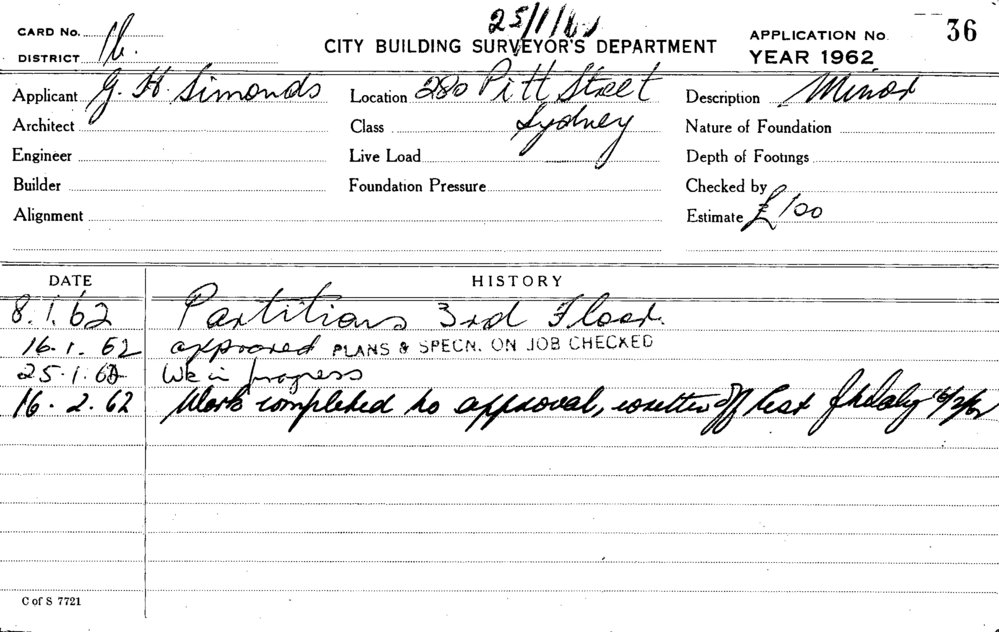 25/1/62
CARD No.
DISTRICT 16.
CITY BUILDING SURVEYOR'S DEPARTMENT
APPLICATION No. 36
YEAR 1962
Applicant G. H. Simonds
Location 280 Pitt Street
Sydney
Description Minor
Architect
Class
Nature of Foundation
Engineer
Live Load
Depth of Footings
Builder
Foundation Pressure
Checked by
Alignment
Estimate £100
DATE HISTORY
8.1.62 Partitions 3rd Floor.
16.1.62 approved PLANS & SPECN. ON JOB CHECKED
25.1.62 Wk in progress
16.2.62 Work completed to approval, written off card 16/2/62
C of S 7721